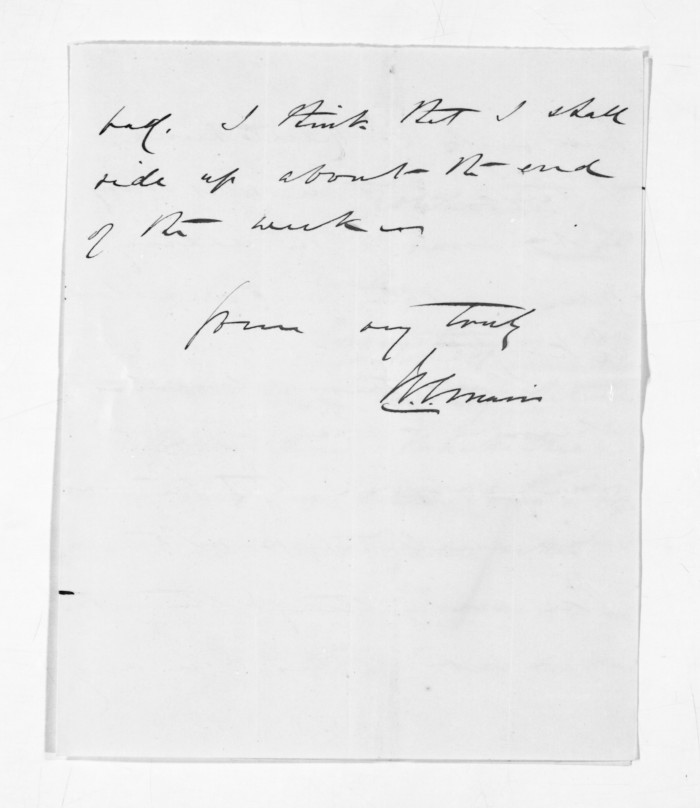 half. I think that I shall
ride up about the end
of the week
Yours very truly